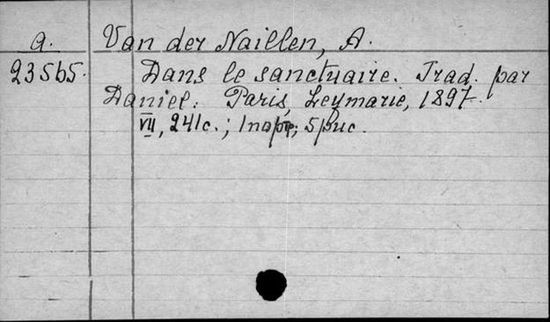 a. Van der Naillen, A.
23565. Dans le sanctuaire. Trad. par
Daniel. Paris, Leymarie, 1897.
VII, 241c.; 1 портр; 5 рис.